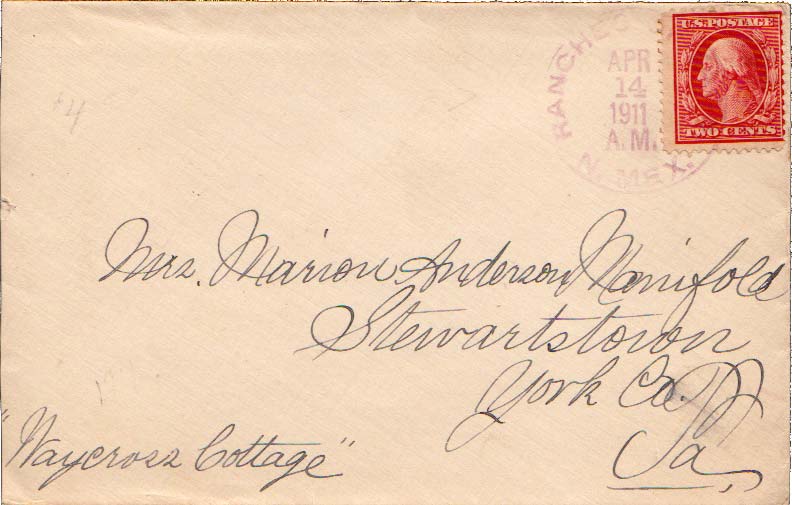 U.S. POSTAGE
TWO CENTS
APR
14
1911
A.M.
N. MEX.
+4
Mrs. Marion Anderson Manifold
Stewartstown
York Co.
Pa.
"Waycross Cottage"